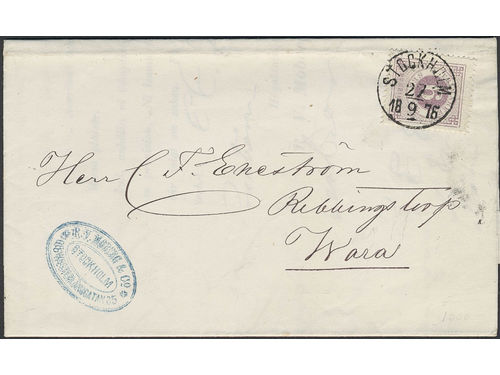 STOCKHOLM
27
18 9 76
Herr C. F. Eneström
Ribbingstorp
Wara
& Co
STOCKHOLM
1200